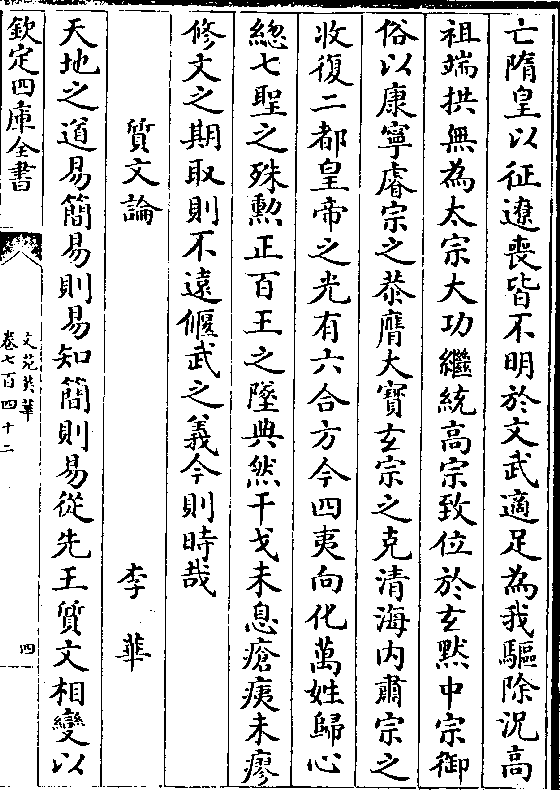 亡隋皇以征遼喪皆不明於文武適足為我驅除況高
祖端拱無為太宗大功繼統高宗致位於玄黙中宗御
俗以康寧睿宗之恭膺大寶玄宗之克清海内肅宗之
收復二都皇帝之光有六合方今四夷向化萬姓歸心
緫七聖之殊勲正百王之墜典然干戈未息瘡痍未瘳
修文之期取則不遠偃武之義今則時哉
質文論 李華
天地之道易簡易則易知簡則易從先王質文相變以
欽定四庫全書
文苑英華
卷七百四十二
四